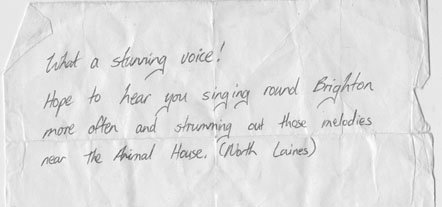 What a stunning voice!
Hope to hear you singing round Brighton
more often and strumming out those melodies
near the Animal House. (North Laines)